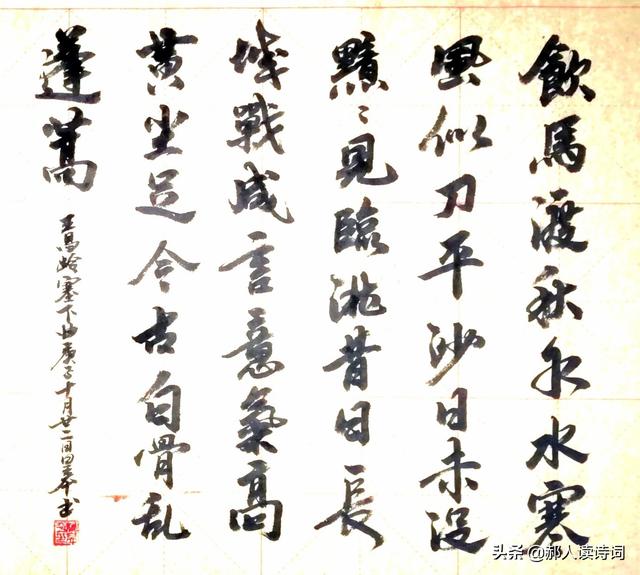 飲馬渡秋水水寒
風似刀平沙日未没
黯〻見臨洮昔日長
城戰咸言意氣高
黄尘足今古白骨乱
蓬蒿
王昌龄塞下曲庚子十月廿二
头条 @郝人读诗词